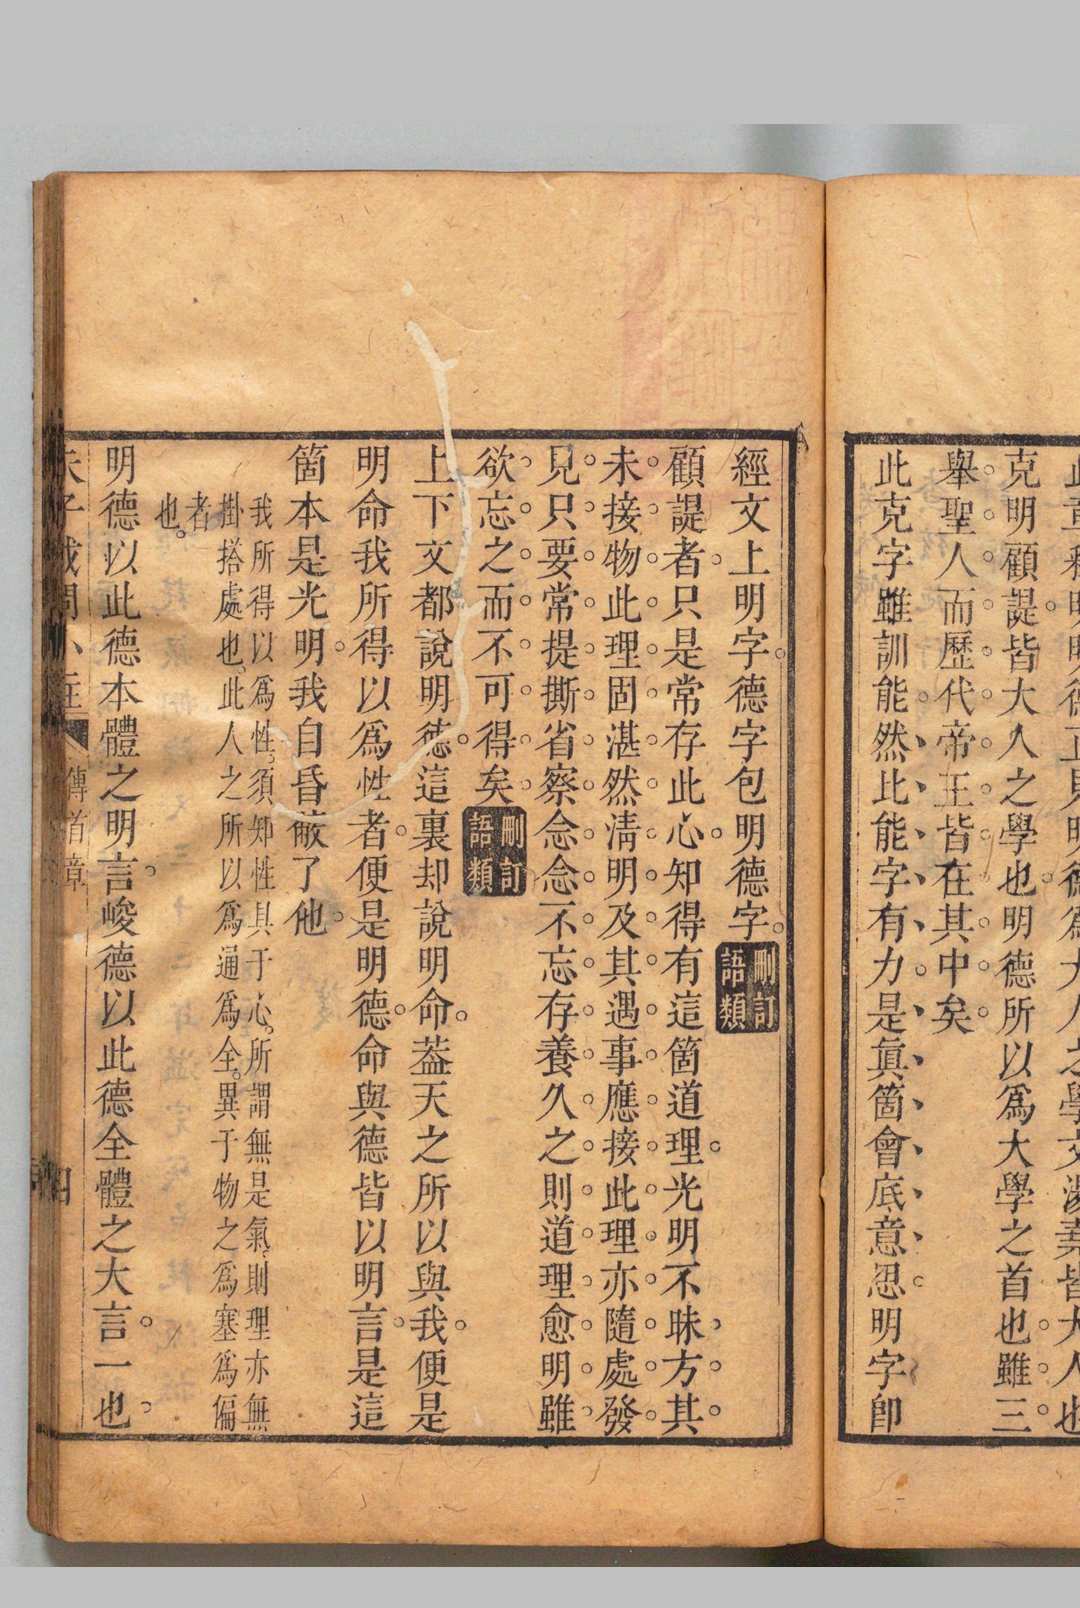 此章釋明明德正見明德為大人之學文湯堯皆大人也
克明顧諟皆大人之學也明德所以爲大學之首也雖三
舉聖人而歷代帝王皆在其中矣
此克字雖訓能然比能字有力是眞箇會底意思明字卽
經文上明字德字包明德字刪訂語類
顧諟者只是常存此心知得有這箇道理光明不昧方其
未接物此理固湛然淸明及其遇事應接此理亦隨處發
見只要常提撕省察念念不忘存養久之則道理愈明雖
欲忘之而不可得矣刪訂語類
上下文都說明德這裏却說明命葢天之所以與我便是
明命我所得以爲性者便是明德命與德皆以明言是這
箇本是光明我自昏蔽了他
我所得以爲性須知性具于心所謂無是氣則理亦無
掛搭處也此人之所以爲通爲全異于物之爲塞爲偏
者
也
明德以此德本體之明言峻德以此德全體之大言一也
朱子或問小註 傳首章 四